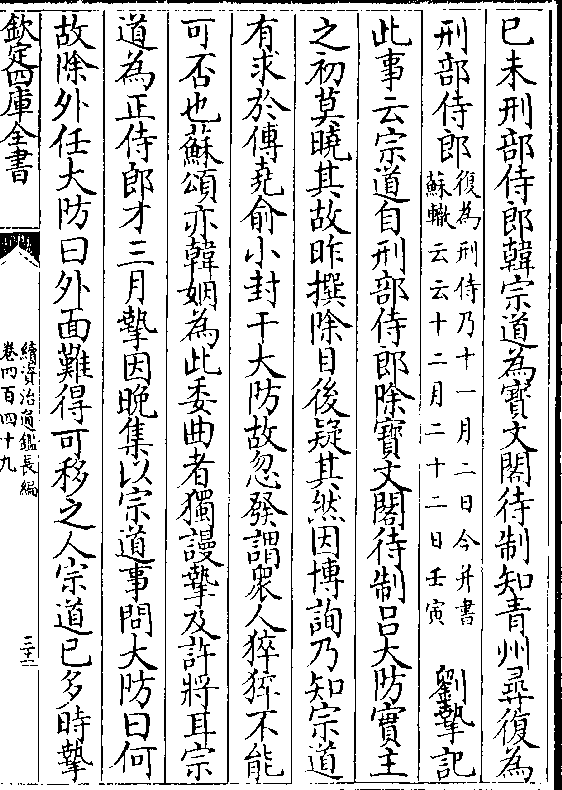 已未刑部侍郎韓宗道為寶文閣待制知青州尋復為
刑部侍郎
復為刑侍乃十一月二日今并書
蘇轍云云十二月二十二日壬寅
劉摯記
此事云宗道自刑部侍郎除寶文閣待制吕大防實主
之初莫曉其故昨撰除目後疑其然因博詢乃知宗道
有求於傅堯俞小封干大防故忽發謂衆人猝猝不能
可否也蘇頌亦韓姻為此委曲者獨謾摯及許將耳宗
道為正侍郎才三月摯因晚集以宗道事問大防曰何
故除外任大防曰外面難得可移之人宗道已多時摯
欽定四庫全書
續資治通鑑長編
卷四百四十九